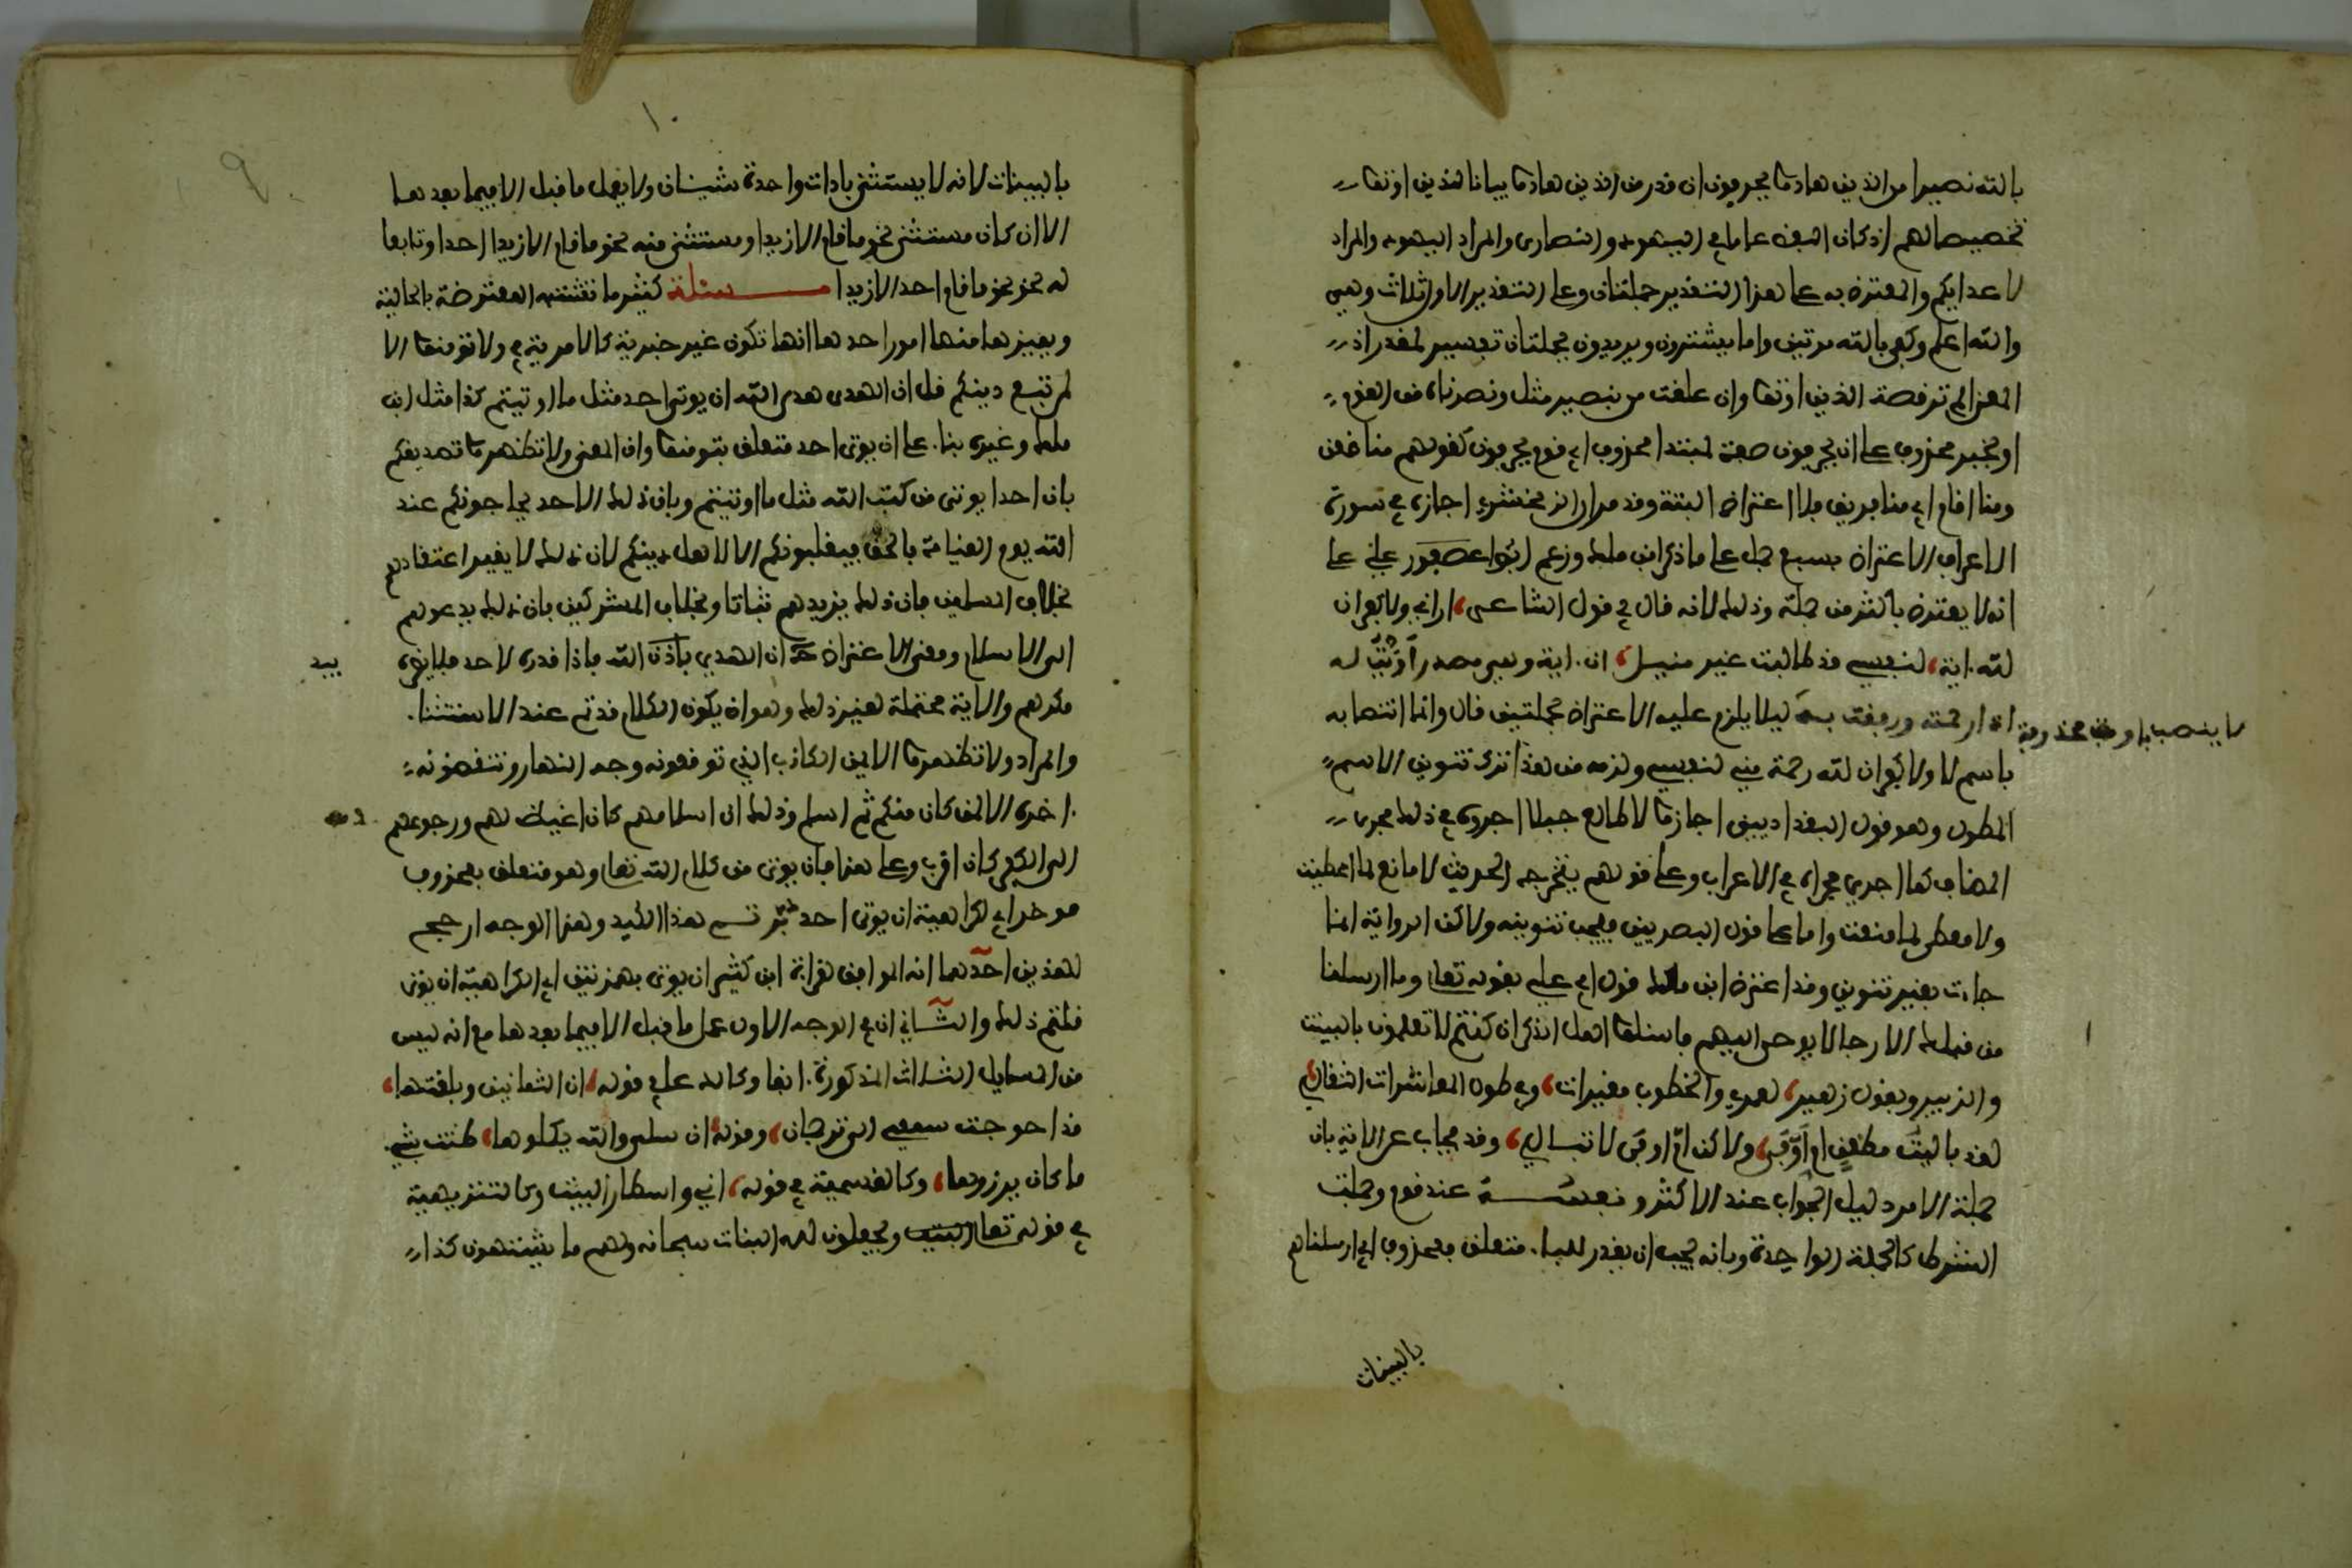 بالله نصيرا من الذين هادوا يحرفون ان قدر من الذين هادوا بيانا للذين اوتوا
تخصيصا لهم اذ كان اللفظ عاما في اليهود والنصارى والمراد اليهود والمراد
لاعدايكم والمعترض به على هذا التقدير جملتان وعلى التقدير الاول ثلاث وهي
والله اعلم وكفى بالله مرتين واما يشترون ويريدون فجملتان تفسير لمقدر اذ
المعنى الم تر قصة الذين اوتوا وان علقت من بنصير مثل ونصرناه من القوم
او بخبر محذوف على ان يحرفون صفة لمبتدا محذوف اي قوم يحرفون كقولهم منا ظعن
ومنا اقام اي منا فريق فلا اعتراض البتة وقد مر ان الزمخشري اجاز في سورة
الاعراف الاعتراض بسبع جمل على ما ذكر ابن مالك وزعم ابو علي
انه لا يعترض باكثر من جملة وذلك لانه قال في قول الشاعر، اراني ولا كفران
لله اية، لنفسي قد طالبت غير منيل، ان اية وهي مصدر اويت له
اذا رحمته ورفقت به ليلا يلزم عليه الاعتراض بجملتين قال وانما انتصابه
لا ينصب باويت محذوفة
باسم لا ولا كفران لله رحمة مني لنفسي ولزمه من هذا ترك تنوين الاسم
المطول وهو قول البغداديين اجازوا لا طالع جبلا اجروه في ذلك مجرى
المضاف كما اجري مجراه في الاعراب وعلى قولهم يتخرج الحديث لا مانع لما اعطيت
ولا معطي لما منعت واما على قول البصريين فيجب تنوينه ولاكن الرواية انما
جاءت بغير تنوين وقد اعترض ابن مالك قول ابي علي بقوله تعالى وما ارسلنا
من قبلك الا رجالا يوحى اليهم فاسئلوا اهل الذكر ان كنتم لا تعلمون بالبينت
والزبر وبقول زهير، لعمري والخطوب مغيرات، وفي طول المعاشرات التقالي،
لقد باليت مظعن ام اوفى، ولاكن ام اوفى لا تبالي، وقد يجاب عن الاية بان
جملة الامر دليل الجواب عند الاكثر ونفسه عند قوم وجملت
الشرط كالجملة الواحدة وبانه يجب ان يقدر للباء متعلق محذوف اي ارسلناهم
بالبينات
١٠
9
بالبينات لانه لا يستثنى باداة واحدة شيئان ولا يعمل ما قبل الا فيما بعدها
الا ان كان مستثنى نحو ما قام الا زيدا ومستثنى منه نحو ما قام الا زيدا احد او تابعا
له نحو نحو ما قام احد الا زيدا مسئلة كثيرا ما تشتبه المعترضة بالحالية
ويميزها منها امور احدها انها تكون غير خبرية كالامرية في ولا تومنوا الا
لمن تبع دينكم قل ان الهدى هدى الله ان يوتى احد مثل ما اوتيتم كذا مثل ابن
مالك وغيره بناء على ان يوتى احد متعلق بتومنوا وان المعنى ولا تظهروا تصديقكم
بان احدا يوتى من كتب الله مثل ما اوتيتم وبان ذلك الاحد يحاجونكم عند
الله يوم القيامة بالحق فيغلبونكم الا لاهل دينكم لان ذلك لا يغير اعتقادهم
بخلاف المسلمين فان ذلك يزيدهم ثباتا وبخلاف المشركين فان ذلك يدعوهم
الى الاسلام ومعنى الاعتراض ان الهدي بيد الله فاذا قدره لاحد فلا يضره
بيد
مكرهم والاية محتملة لغير ذلك وهو ان يكون الكلام قد تم عند الاستثناء
والمراد ولا تظهروا الايمن الكاذب الذي توقعونه وجه النهار وتنقضونه
اخره الا لمن كان منكم ثم اسلم وذلك ان اسلامهم كان اغيظ لهم ورجوعهم
الى الكفر كان اقرب وعلى هذا فان يوتى من كلام الله تعالى وهو متعلق بمحذوف
موخر اي لكراهية ان يوتى احد دبرتم هذا الكيد وهذا الوجه ارجح
لهذين احدهما انه الموافق لقراءة ابن كثير ان يوتى بهمزتين اي الكراهية ان يوتى
قلتم ذلك والثاني ان في الوجه الاول عمل ما قبل الا فيما بعدها مع انه ليس
من المسايل الثلاث المذكورة انفا وكالدعاء في قوله، ان الثمانين وبلغتها،
قد احوجت سمعي الى ترجمان، وقوله، ان سليمى والله يكلوها، ظنت بشي
ما كان يرزوها، وكالقسمية في قوله، اني واسطار البيت وكالتنزيهية
في قوله تعالى ويجعلون لله البنات سبحانه ولهم ما يشتهون كذا